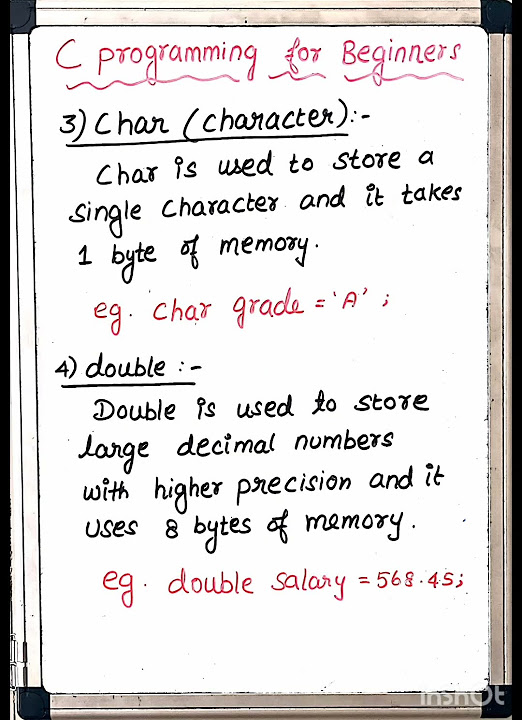 C programming for Beginners
3) Char (character):-
Char is used to store a
single character and it takes
1 byte of memory.
eg. char grade = 'A' ;
4) double :-
Double is used to store
large decimal numbers
with higher precision and it
uses 8 bytes of memory.
eg. double salary = 568.45;
InShOt